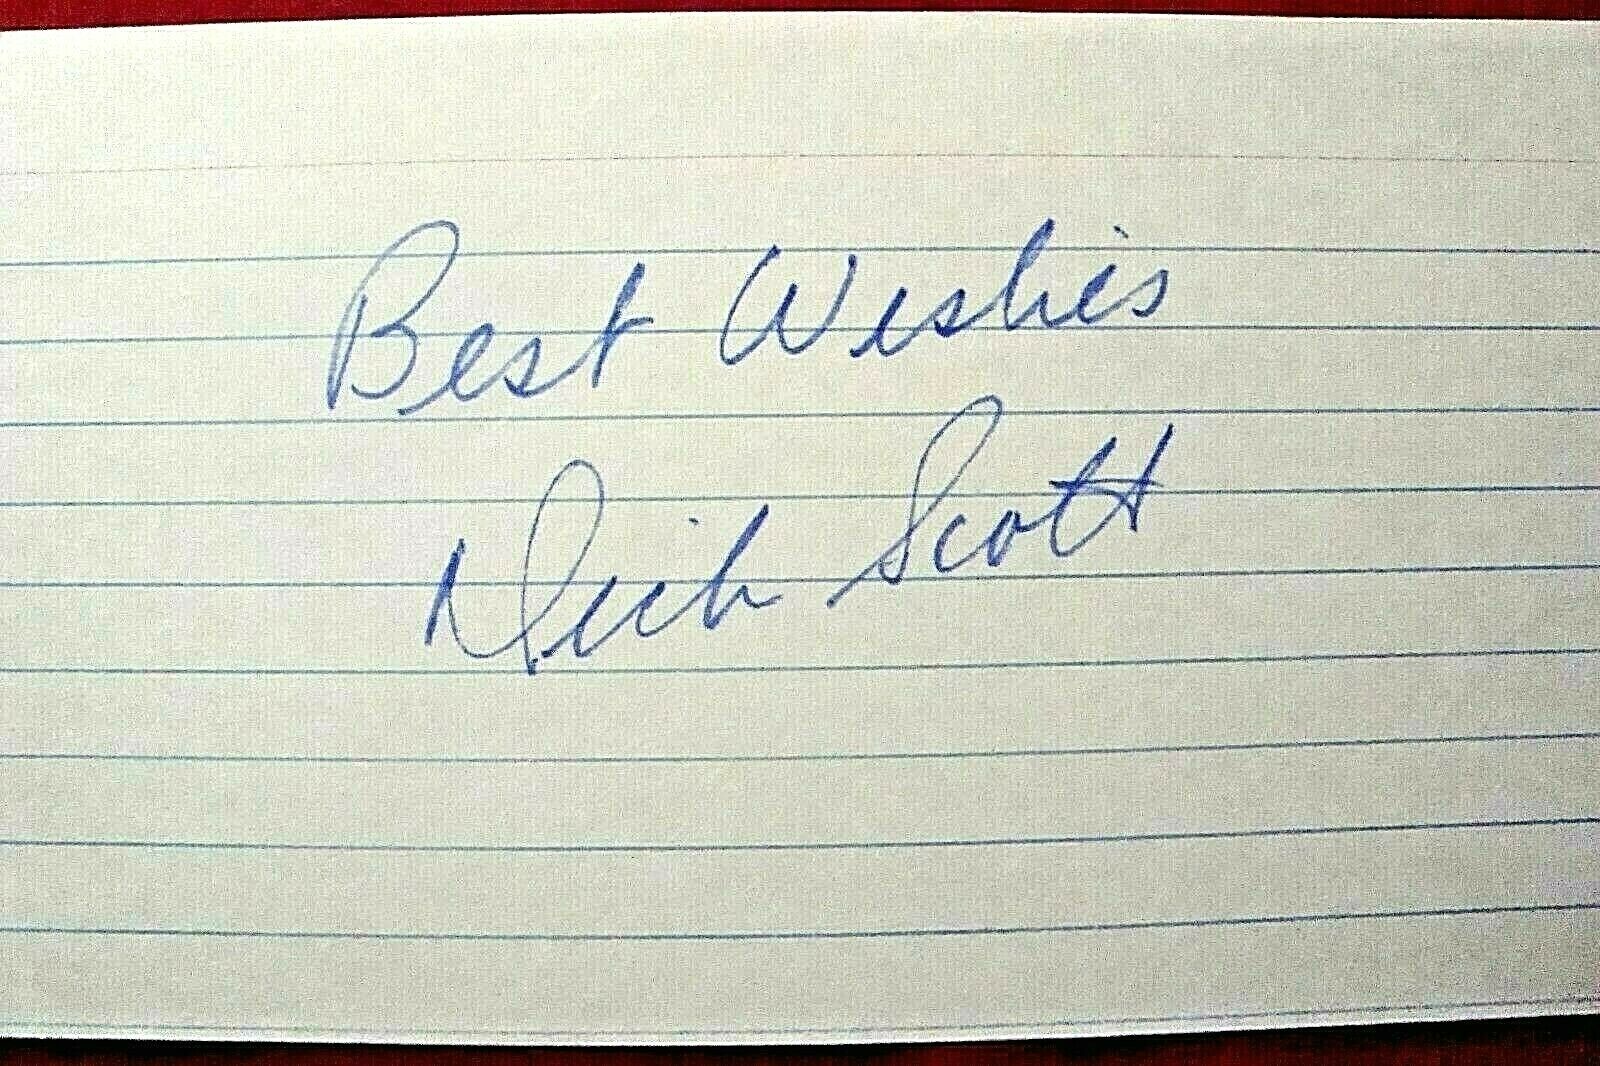 Best Wishes
Dick Scott